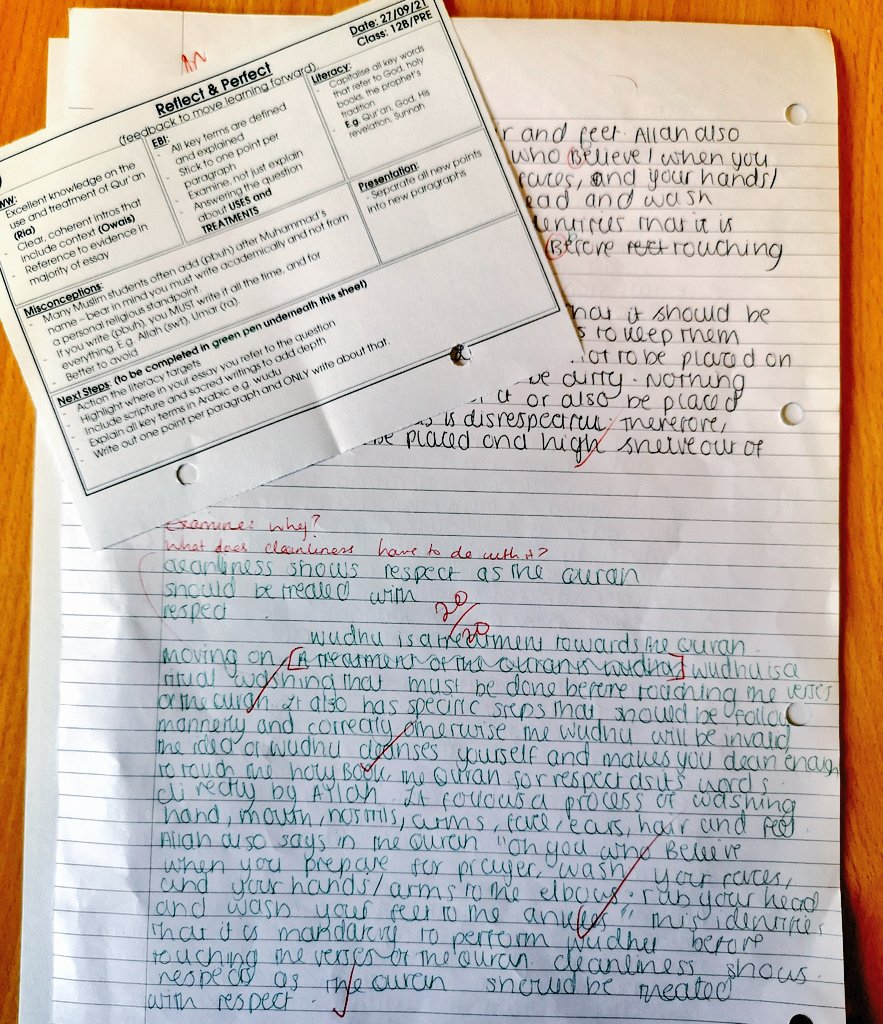 Date: 27/09/21
Class: 12B/PRE
Reflect & Perfect
(feedback to move learning forward)
WW:
- Excellent knowledge on the
use and treatment of Qur'an
(Ria)
- Clear, coherent intros that
include context (Owais)
- Reference to evidence in
majority of essay
EBI:
- All key terms are defined
and explained
- Stick to one point per
paragraph
- Examine, not just explain
- Answering the question
about USES and
TREATMENTS
Literacy:
- Capitalise all key words
that refer to God, holy
books, the prophet's
tradition
- E.g. Qur'an, God, His
revelation, Sunnah
Presentation:
- Separate all new points
into new paragraphs
Misconceptions:
- Many Muslim students often add (pbuh) after Muhammad's
name – bear in mind you must write academically and not from
a personal religious standpoint.
- If you write (pbuh), you MUST write it all the time, and for
everything. E.g. Allah (swt), Umar (ra).
- Better to avoid
Next Steps: (to be completed in green pen underneath this sheet)
- Action the literacy targets
- Highlight where in your essay you refer to the question
- Include scripture and sacred writings to add depth
- Explain all key terms in Arabic e.g. wudu
- Write out one point per paragraph and ONLY write about that.
and feet. Allah also
who Believe! when you
faces, and your hands/
ead and wash
that it is
Before feet touching
it should be
to keep them
not to be placed on
be dirty. Nothing
it or also be placed
is disrespectful. Therefore,
be placed and high shelve our of
Examines why?
What does cleanliness have to do with it?
cleanliness shows respect as the Quran
should be treated with
respect
20/20
wudhu is a treatment towards the Quran.
moving on [A treatment of the Quran is wudhu] wudhu is a
ritual washing that must be done before touching the verses
of the Quran. It also has specific steps that should be follow
mannerly and correctly otherwise the wudhu will be invalid
the idea of wudhu cleanses yourself and makes you clean enough
to touch the holy Book the Quran for respect as its words
directly by Allah. It follows a process of washing
hand, mouth, nostrils, arms, face, ears, hair and feet
Allah also says in the Quran "Oh you who Believe
when you prepare for prayer, wash your faces,
and your hands/arms to the elbows. rub your head
and wash your feet to the ankles". This identifies
that it is mandatory to perform wudhu before
touching the verses of the Quran. cleanliness shows
respect as the Quran should be treated
with respect.